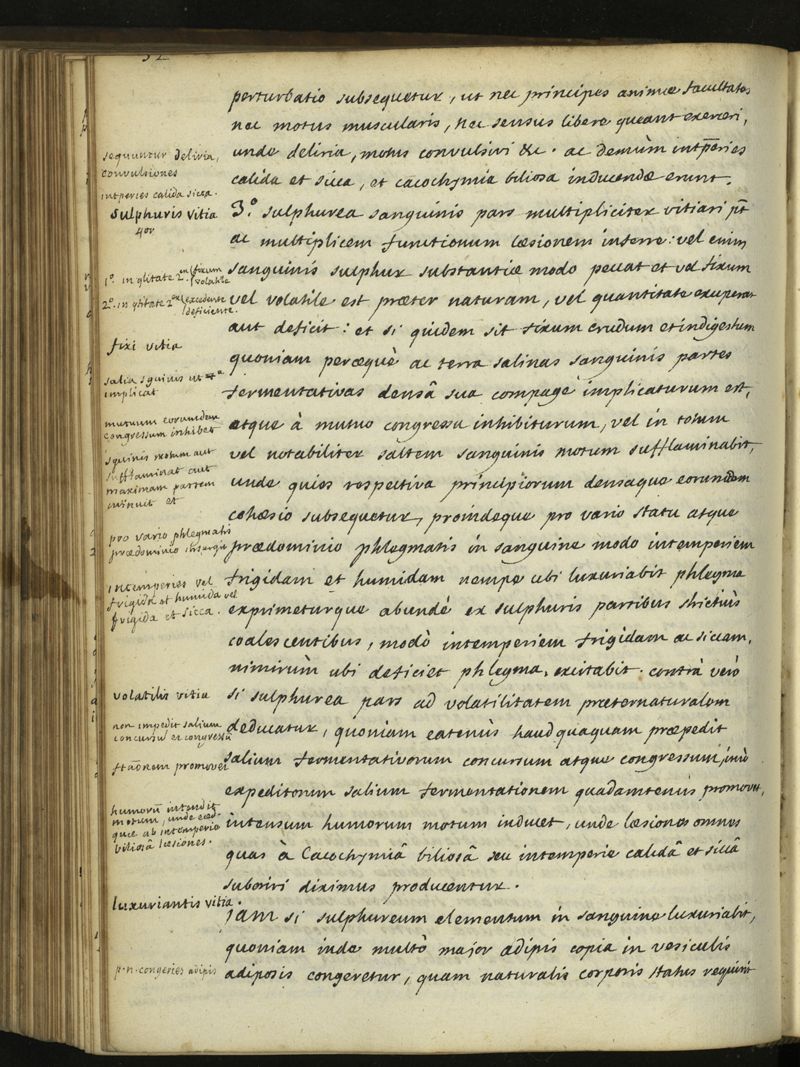 perturbatio subsequetur, ut nec principes animæ facultates
nec motus muscularis, nec sensus libere queant exerceri,
sequuntur deliria,
convulsiones
unde deliria, motus convulsivi &c. ac demùm intp̄eries
intperies calida sicca.
calida et sicca, et cacochymia biliosa inducendæ erunt.
Sulphuris vitia
4or
3.º sulphurea sanguinis pars multipliciter vitiari pt
ac multiplicem functionum læsionem inferre: vel enim
1º. in qlitate 2. in fixum
volatile
sanguinis sulphur substantiæ modo peccat et vel fixum
2º. in qtitate 2. excedente
deficiente.
vel volatile est præter naturam, vel quantitate exuperat
aut deficit: et si quidem sit fixum crudum et indigestum
fixi vitia
quoniam peræquè ac terra salinas sanguinis partes
salia sguinis ut
implicat
fermentativas densâ sua compage implicaturum est,
mutuum eorumdem
congressum inhibet
atque à mutuo congressu inhibiturum, vel in totum
sguinis motum aut
sufflaminat aut
maximam partem
minuit et
vel notabiliter saltem sanguinis motum sufflaminabit,
unde quies respectiva principiorum densaque eorumdem
cohæsio subsequetur, proindeque pro vario statu atque
pro vario phlegmatis
prædominio insurgit
prædominio phlegmatis in sanguine modo intemperiem
intemperies vel
frigida et humida vel
frigida et sicca.
frigidam et humidam nempe ubi luxuriabit phlegma
exprimeturque abundè ex sulphuris partibus strictiùs
coalescentibus, modò intemperiem frigidam ac siccam,
nimirùm ubi deficiet phlegma, excitabit. contrà verò
volatilis vitia
si sulphurea pars ad volatilitatem præternaturalem
non impedit salium
concursu et congressu
deducatur, quoniam eatenùs haudquaquam præpedit
ftāōnem promovet
salium fermentativorum concursum atque congressum, imò
expeditorum salium fermentationem quadamtenùs promovet,
humorū intendit
motum, unde eæd
quæ ab intemperie
biliosâ læsiones.
intensum humorum motum inducet, unde læsiones omnes
quas à Cacochymiâ biliosâ seu intemperie calidâ et siccâ
suboriri diximus producentur.
luxuriantis vitia.
jam si sulphureum elementum in sanguine luxuriabit,
quoniam inde multò major adipis copia in vesiculis
p.n. congeries adipis
adiposis congeretur, quam naturalis corporis status requirit